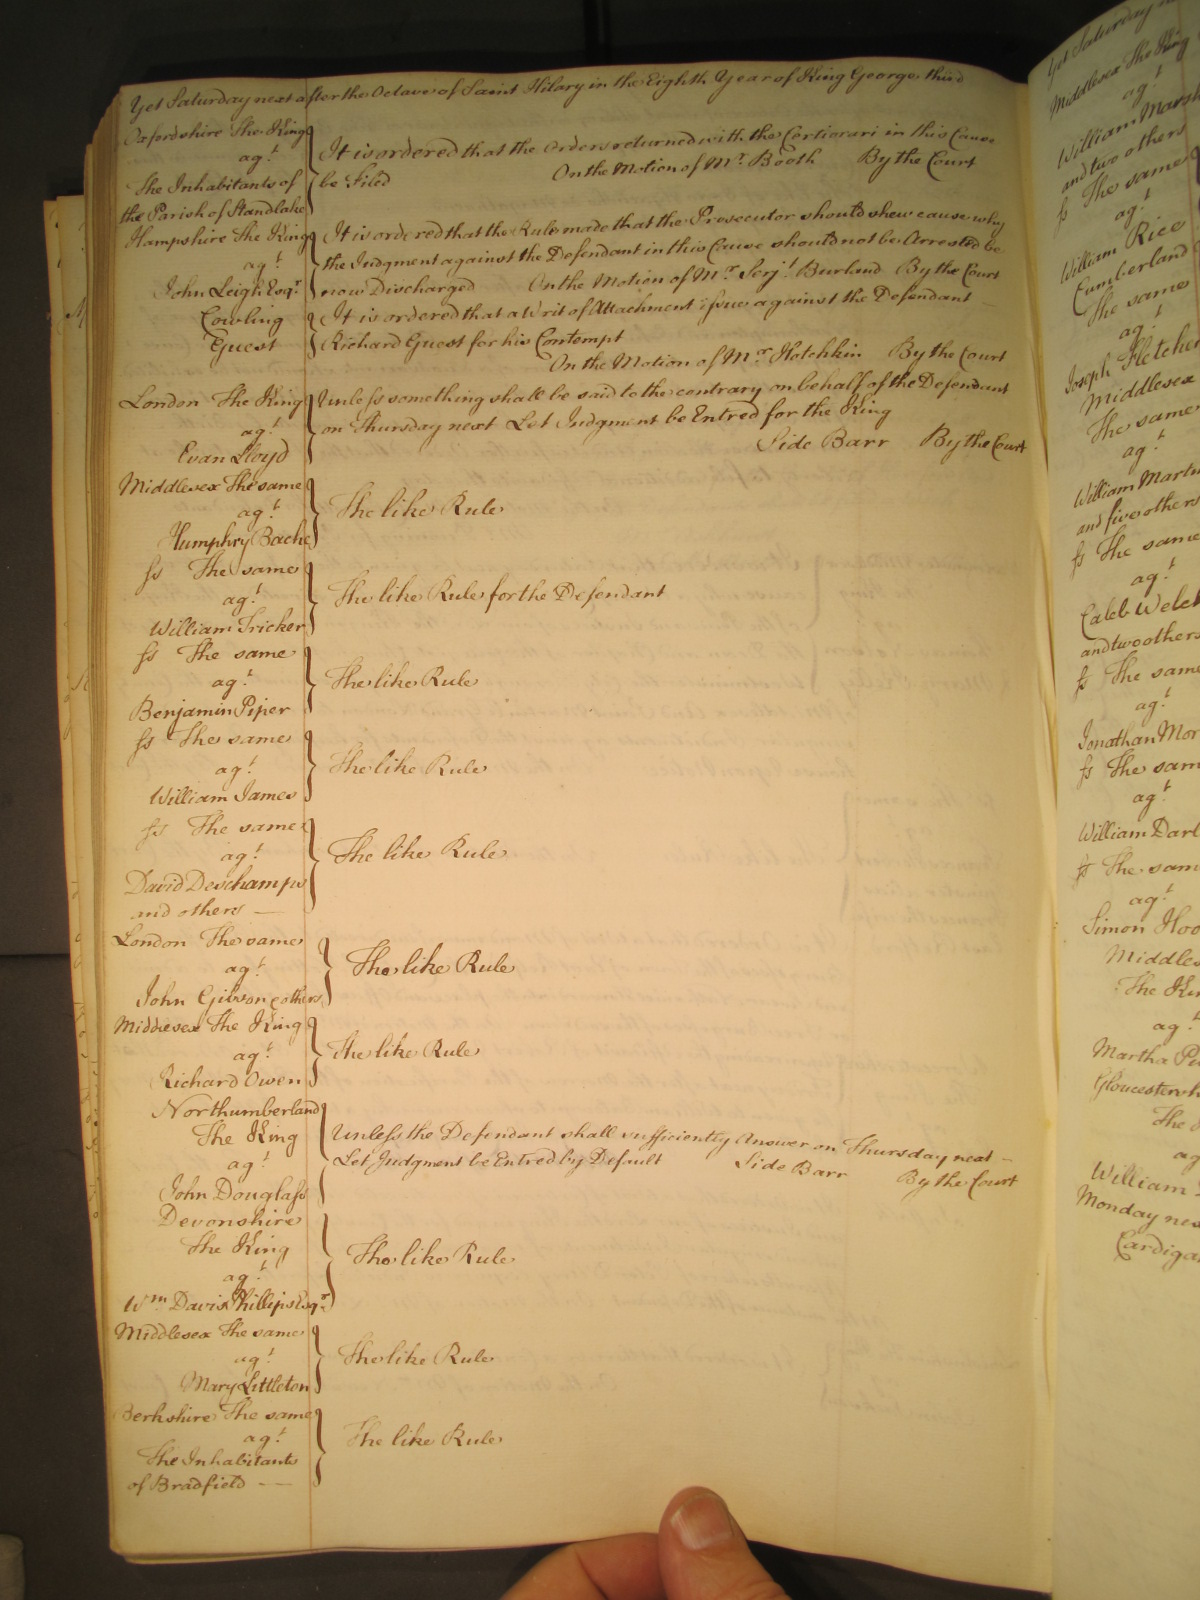 Yet Saturday next after the Octave of Saint Hilary in the Eighth Year of King George third
Oxfordshire The King
agt
The Inhabitants of
the Parish of Standlake
It is ordered that the Orders returned with the Certiorari in this Cause
be Filed On the Motion of Mr. Booth By the Court
Hampshire The King
agt
John Leigh Esqr.
It is ordered that the Rule made that the Prosecutor should shew cause why
the Judgment against the Defendant in this Cause should not be Arrested be
now Discharged On the Motion of Mr. Serjt. Burland By the Court
Cowling
Guest
It is ordered that a Writ of Attachment issue against the Defendant
Richard Guest for his Contempt
On the Motion of Mr. Hotchkin By the Court
London The King
agt
Evan Lloyd
Unless something shall be said to the contrary on behalf of the Defendant
on Thursday next Let Judgment be Entred for the King
Side Barr By the Court
Middlesex The same
agt
Humphry Bache
The like Rule
ss The same
agt
William Tricker
The like Rule for the Defendant
ss The same
agt
Benjamin Piper
The like Rule
ss The same
agt
William James
The like Rule
ss The same
agt
David Deschamps
and others —
The like Rule
London The same
agt
John Gibson & others
The like Rule
Middlesex The King
agt
Richard Owen
The like Rule
Northumberland
The King
agt
John Douglass
Unless the Defendant shall sufficiently Answer on Thursday next —
Let Judgment be Entred by Default Side Barr By the Court
Devonshire
The King
agt
Wm Davis Phillips Esqr.
The like Rule
Middlesex The same
agt
Mary Littleton
The like Rule
Berkshire The same
agt
The Inhabitants
of Bradfield — —
The like Rule
Yet Saturday
Middlesex The King
agt
William
and two others
ss The same
agt
William Rice
Cumberland
The same
agt
Joseph Fletcher
Middlesex
The same
agt
William
and five others
ss The same
agt
Caleb
and two others
ss The same
agt
Jonathan
ss The
agt
William
ss The
agt
Simon
The
agt
Martha
The
William
Monday